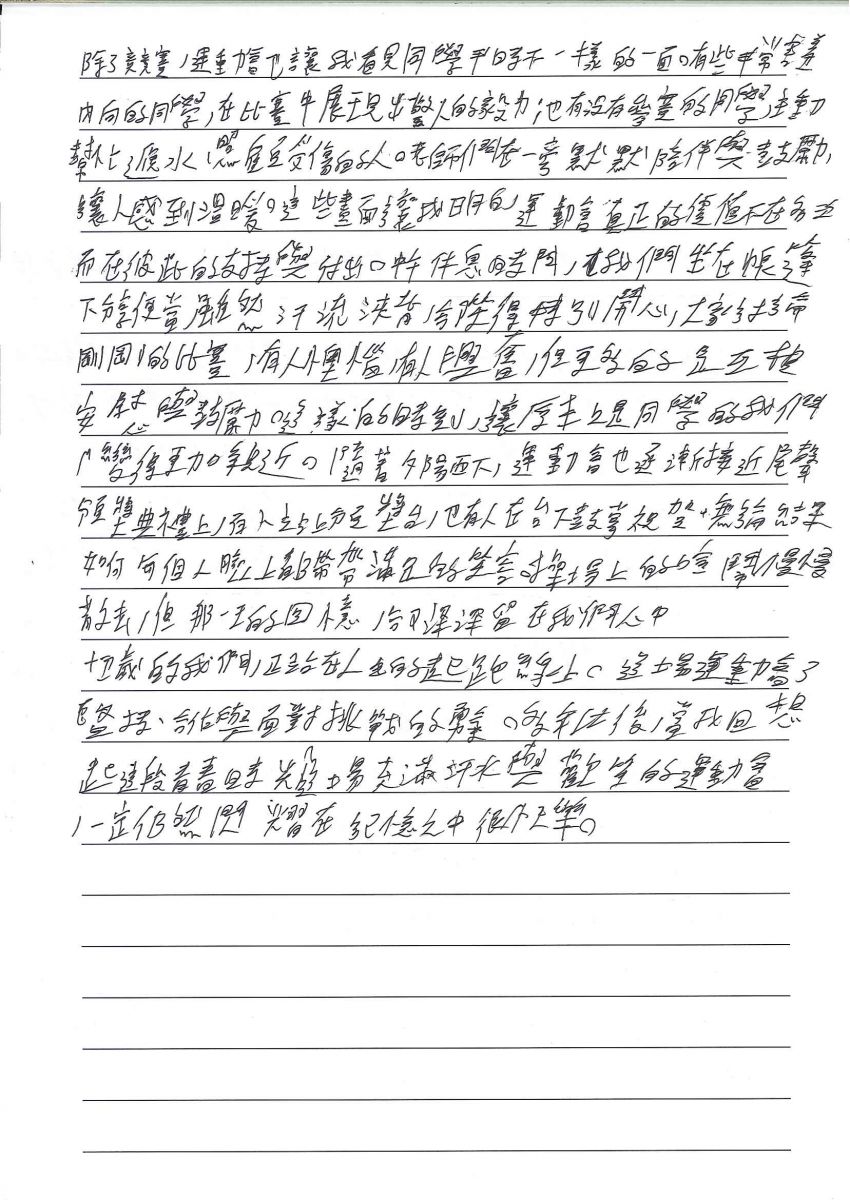 除了競賽,運動會也讓我看見同學平日不一樣的一面。有些平常害羞
內向的同學,在比賽中展現出驚人的毅力;也有沒有參賽的同學,主動
幫忙遞水、照顧受傷的人。老師們在一旁默默陪伴與鼓勵,
讓人感到溫暖。這些畫面讓我明白,運動會真正的價值不在名次
而在彼此的支持與付出。中午休息時間,我們坐在帳篷
下分享便當,雖然汗流浹背,卻覺得特別開心,大家討論
剛剛的比賽,有人懊惱,有人興奮,但更多的是互相
安慰與鼓勵。這樣的時刻,讓原本只是同學的我們
變得更加親近。隨著夕陽西下,運動會也逐漸接近尾聲
頒獎典禮上,有人站上領獎台,也有人在台下鼓掌祝賀。無論結果
如何每個人臉上都帶著滿足的笑容。操場上的喧鬧慢慢
散去,但那一天的回憶,卻深深留在我們心中
十四歲的我們,正站在人生的起跑線上。這場運動會
堅持、合作與面對挑戰的勇氣。多年以後,當我回想
起這段青春時光,這場充滿汗水與歡笑的運動會
,一定仍然閃耀在記憶之中很快樂。